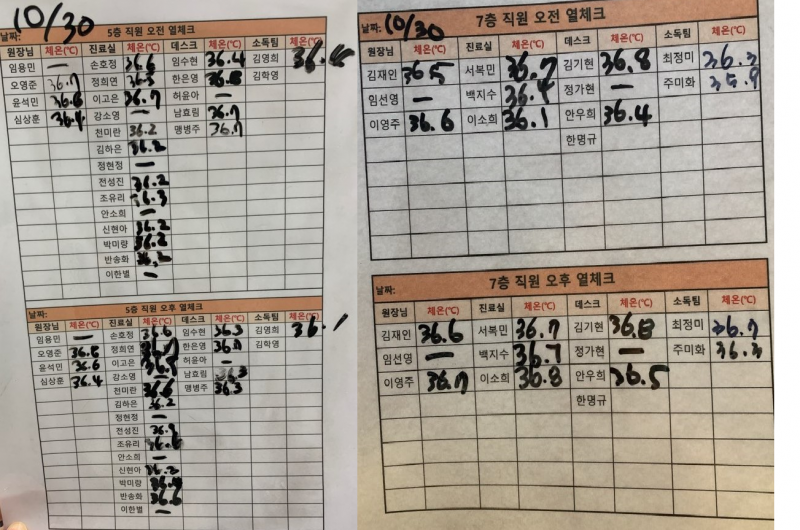 10/30
5층 직원 오전 열체크
날짜:
원장님 체온(℃) 진료실 체온(℃) 데스크 체온(℃) 소독팀 체온(℃)
임용민 — 손호정 36.6 임수현 36.4 김영희
오영준 36.7 정희연 36.5 한은영 36.8 김학영
윤석민 36.6 이고은 36.7 허윤아 —
심상훈 36.4 강소영 — 남효림 36.7
천미란 36.2 맹병주 36.7
김하은 36.2
정현정 —
전성진 36.2
조유리 36.3
안소희 —
신현아 36.2
박미량 36.2
반송화 36.2
이한별 —
5층 직원 오후 열체크
날짜:
원장님 체온(℃) 진료실 체온(℃) 데스크 체온(℃) 소독팀 체온(℃)
임용민 — 손호정 36.6 임수현 36.3 김영희 36.1
오영준 36.5 정희연 한은영 36.7 김학영
윤석민 36.6 이고은 허윤아 —
심상훈 36.4 강소영 — 남효림 36.3
천미란 36.6 맹병주 36.3
김하은 36.2
정현정 —
전성진 36.9
조유리 36.6
안소희 —
신현아 36.2
박미량 36.4
반송화 36.6
이한별 —
10/30
7층 직원 오전 열체크
날짜:
원장님 체온(℃) 진료실 체온(℃) 데스크 체온(℃) 소독팀 체온(℃)
김재인 36.5 서복민 36.7 김기현 36.8 최정미 36.3
임선영 — 백지수 36.4 정가현 — 주미화 35.9
이영주 36.6 이소희 36.1 안우희 36.4
한명규
7층 직원 오후 열체크
날짜:
원장님 체온(℃) 진료실 체온(℃) 데스크 체온(℃) 소독팀 체온(℃)
김재인 36.6 서복민 36.7 김기현 36.8 최정미 36.7
임선영 — 백지수 36.7 정가현 — 주미화 36.3
이영주 36.7 이소희 36.8 안우희 36.5
한명규